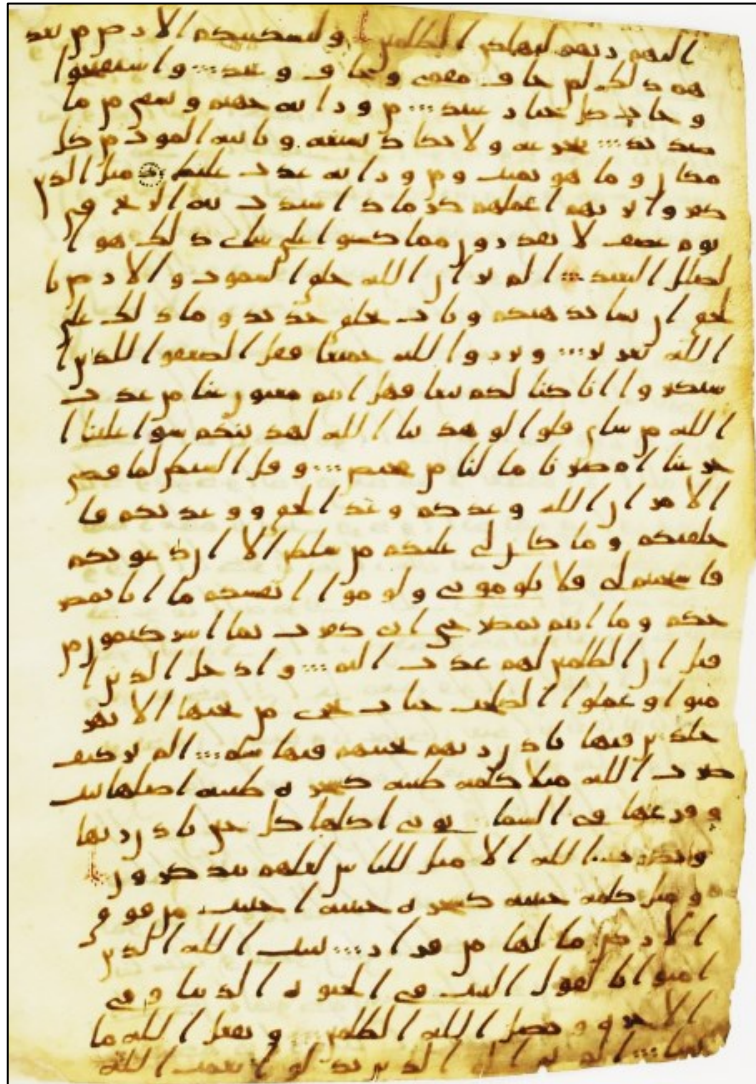 اليهم ربهم لنهلكن الظلمين ولنسكننكم الارض من بعد
هم ذلك لمن خاف مقمي وخاف وعيد واستفتحوا
وخاب كل جبار عنيد من ورايه جهنم ويسقى من ما
صديد يتجرعه ولا يكاد يسيغه وياتيه الموت من كل
مكان وما هو بميت ومن ورايه عذب غليظ مثل الذين
كفروا بربهم اعملهم كرماد اشتدت به الريح في
يوم عصف لا يقدرون مما كسبوا على شاي ذلك هو ا
لضلل البعيد الم تر ان الله خلق السموت والارض با
لحق ان يشا يذهبكم ويات بخلق جديد وما ذلك على
الله بعزيز وبرزوا لله جميعا فقل الضعفوا للذين ا
ستكبروا انا كنا لكم تبعا فهل انتم مغنون عنا من عذب
الله من شاي قلوا لو هدينا الله لهدينكم سوا علينا ا
جزعنا ام صبرنا ما لنا من محيص وقل الشيطن لما قضي
الامر ان الله وعدكم وعد الحق ووعدتكم فا
خلفتكم وما كان لي عليكم من سلطن الا ان دعوتكم
فاستجبتم لي فلا تلوموني ولوموا انفسكم ما انا بمصر
خكم وما انتم بمصرخي اني كفرت بما اشركتمون من
قبل ان الظلمين لهم عذب اليم وادخل الذين ا
منوا وعملوا الصلحت جنات تجري من تحتها الانهر
خلدين فيها باذن ربهم تحيتهم فيها سلم الم تر كيف
ضرب الله مثلا كلمة طيبة كشجرة طيبة اصلها ثبت
وفرعها في السما توتي اكلها كل حين باذن ربها
ويضرب الله الامثل للناس لعلهم يتذكرون
ومثل كلمة خبيثة كشجرة خبيثة اجتثت من فوق
الارض ما لها من قرار يثبت الله الذين
امنوا بالقول الثبت في الحيوة الدنيا وفي
الاخرة ويضل الله الظلمين ويفعل الله ما
يشا الم تر الى الذين بدلوا نعمت الله